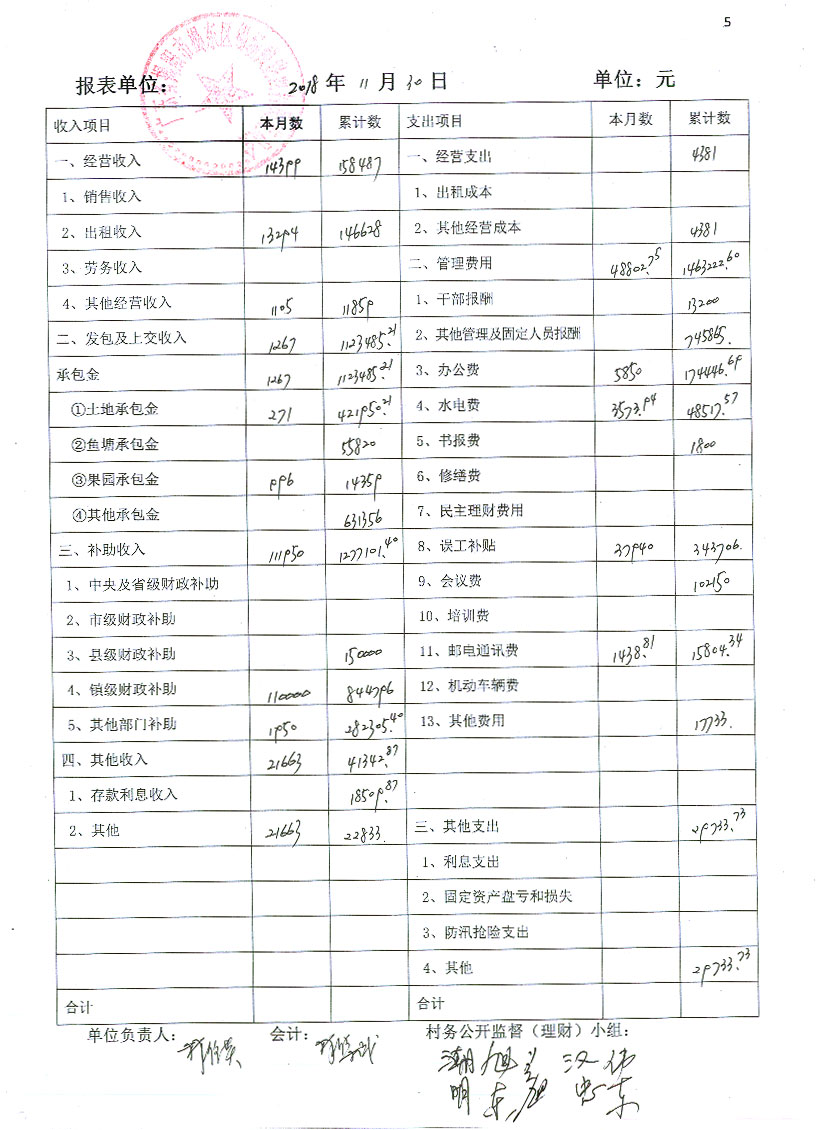 5
报表单位: 2018 年 11 月 30 日 单位: 元
收入项目 本月数 累计数 支出项目 本月数 累计数
一、经营收入 14399 158487 一、经营支出 4381
1、销售收入 1、出租成本
2、出租收入 13294 146628 2、其他经营成本 4381
3、劳务收入 二、管理费用 48802.75 1463222.60
4、其他经营收入 1105 11859 1、干部报酬 13200
二、发包及上交收入 1267 1123485.21 2、其他管理及固定人员报酬 745865.
承包金 1267 1123485.21 3、办公费 5850 174446.69
①土地承包金 271 421950.21 4、水电费 3573.94 48517.57
②鱼塘承包金 55820 5、书报费 1800
③果园承包金 996 14359 6、修缮费
④其他承包金 631356 7、民主理财费用
三、补助收入 111950 1277101.40 8、误工补贴 37940 343706.
1、中央及省级财政补助 9、会议费 102150
2、市级财政补助 10、培训费
3、县级财政补助 150000 11、邮电通讯费 1438.81 15804.34
4、镇级财政补助 110000 844796 12、机动车辆费
5、其他部门补助 1950 282305.40 13、其他费用 17733.
四、其他收入 21663 41342.87
1、存款利息收入 18509.87
2、其他 21663 22833 三、其他支出 29733.73
1、利息支出
2、固定资产盘亏和损失
3、防汛抢险支出
4、其他 29733.73
合计 合计
单位负责人: 会计: 村务公开监督（理财）小组:
潮旭 汉伟
明东 忠东